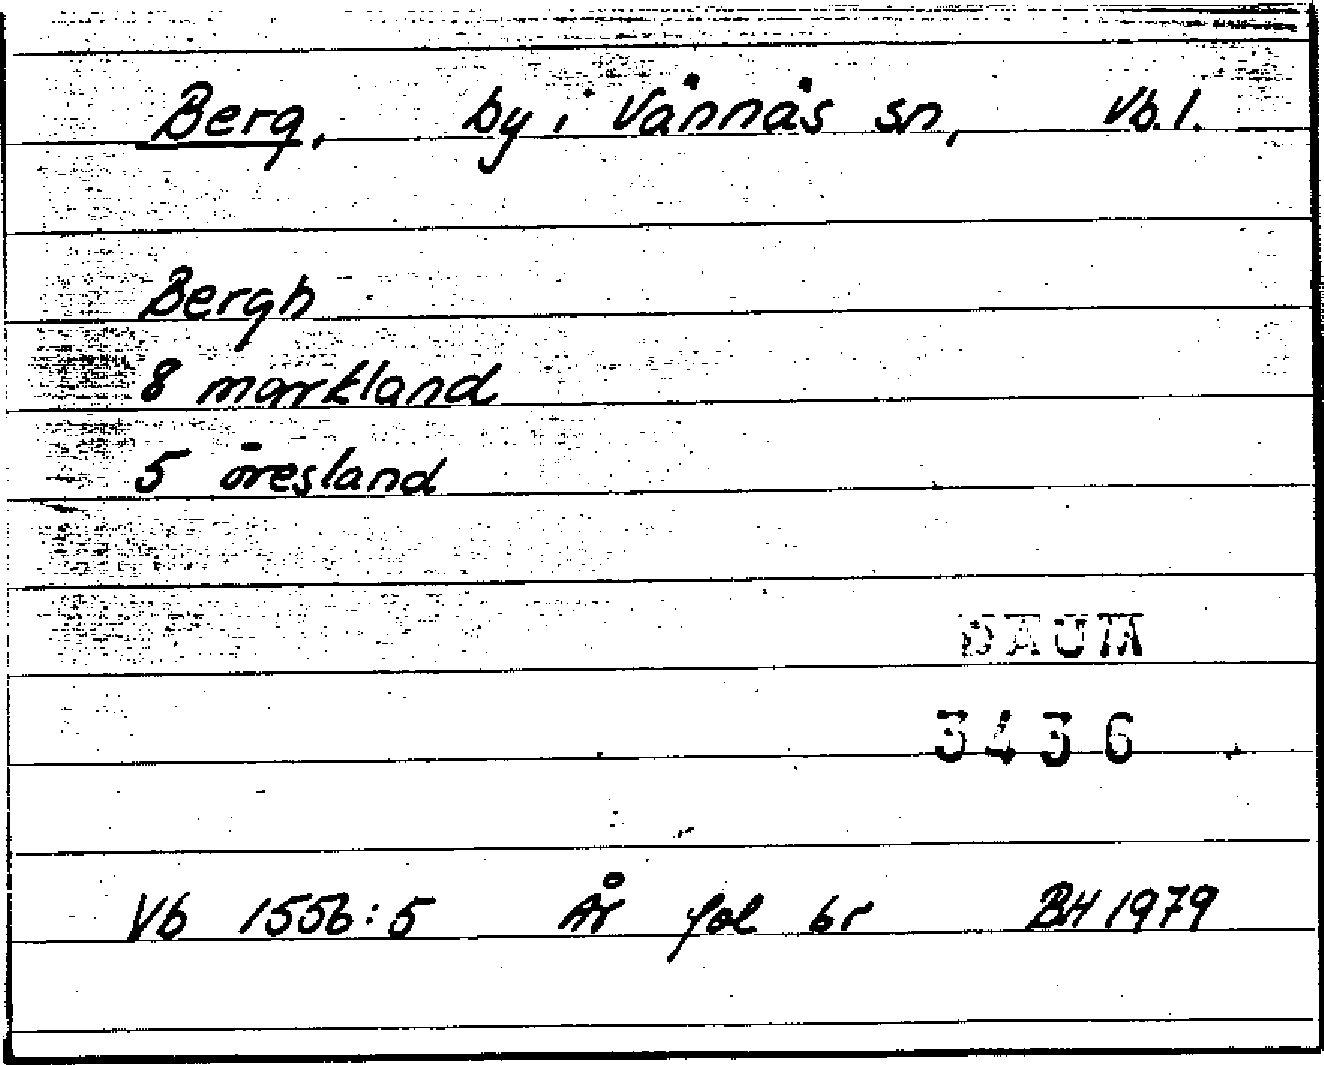 Berg, by i Vännäs sn, Vb. l.
Bergh
8 markland
5 öresland
DAUM
3436
Vb 1556:5 År fol br BH 1979